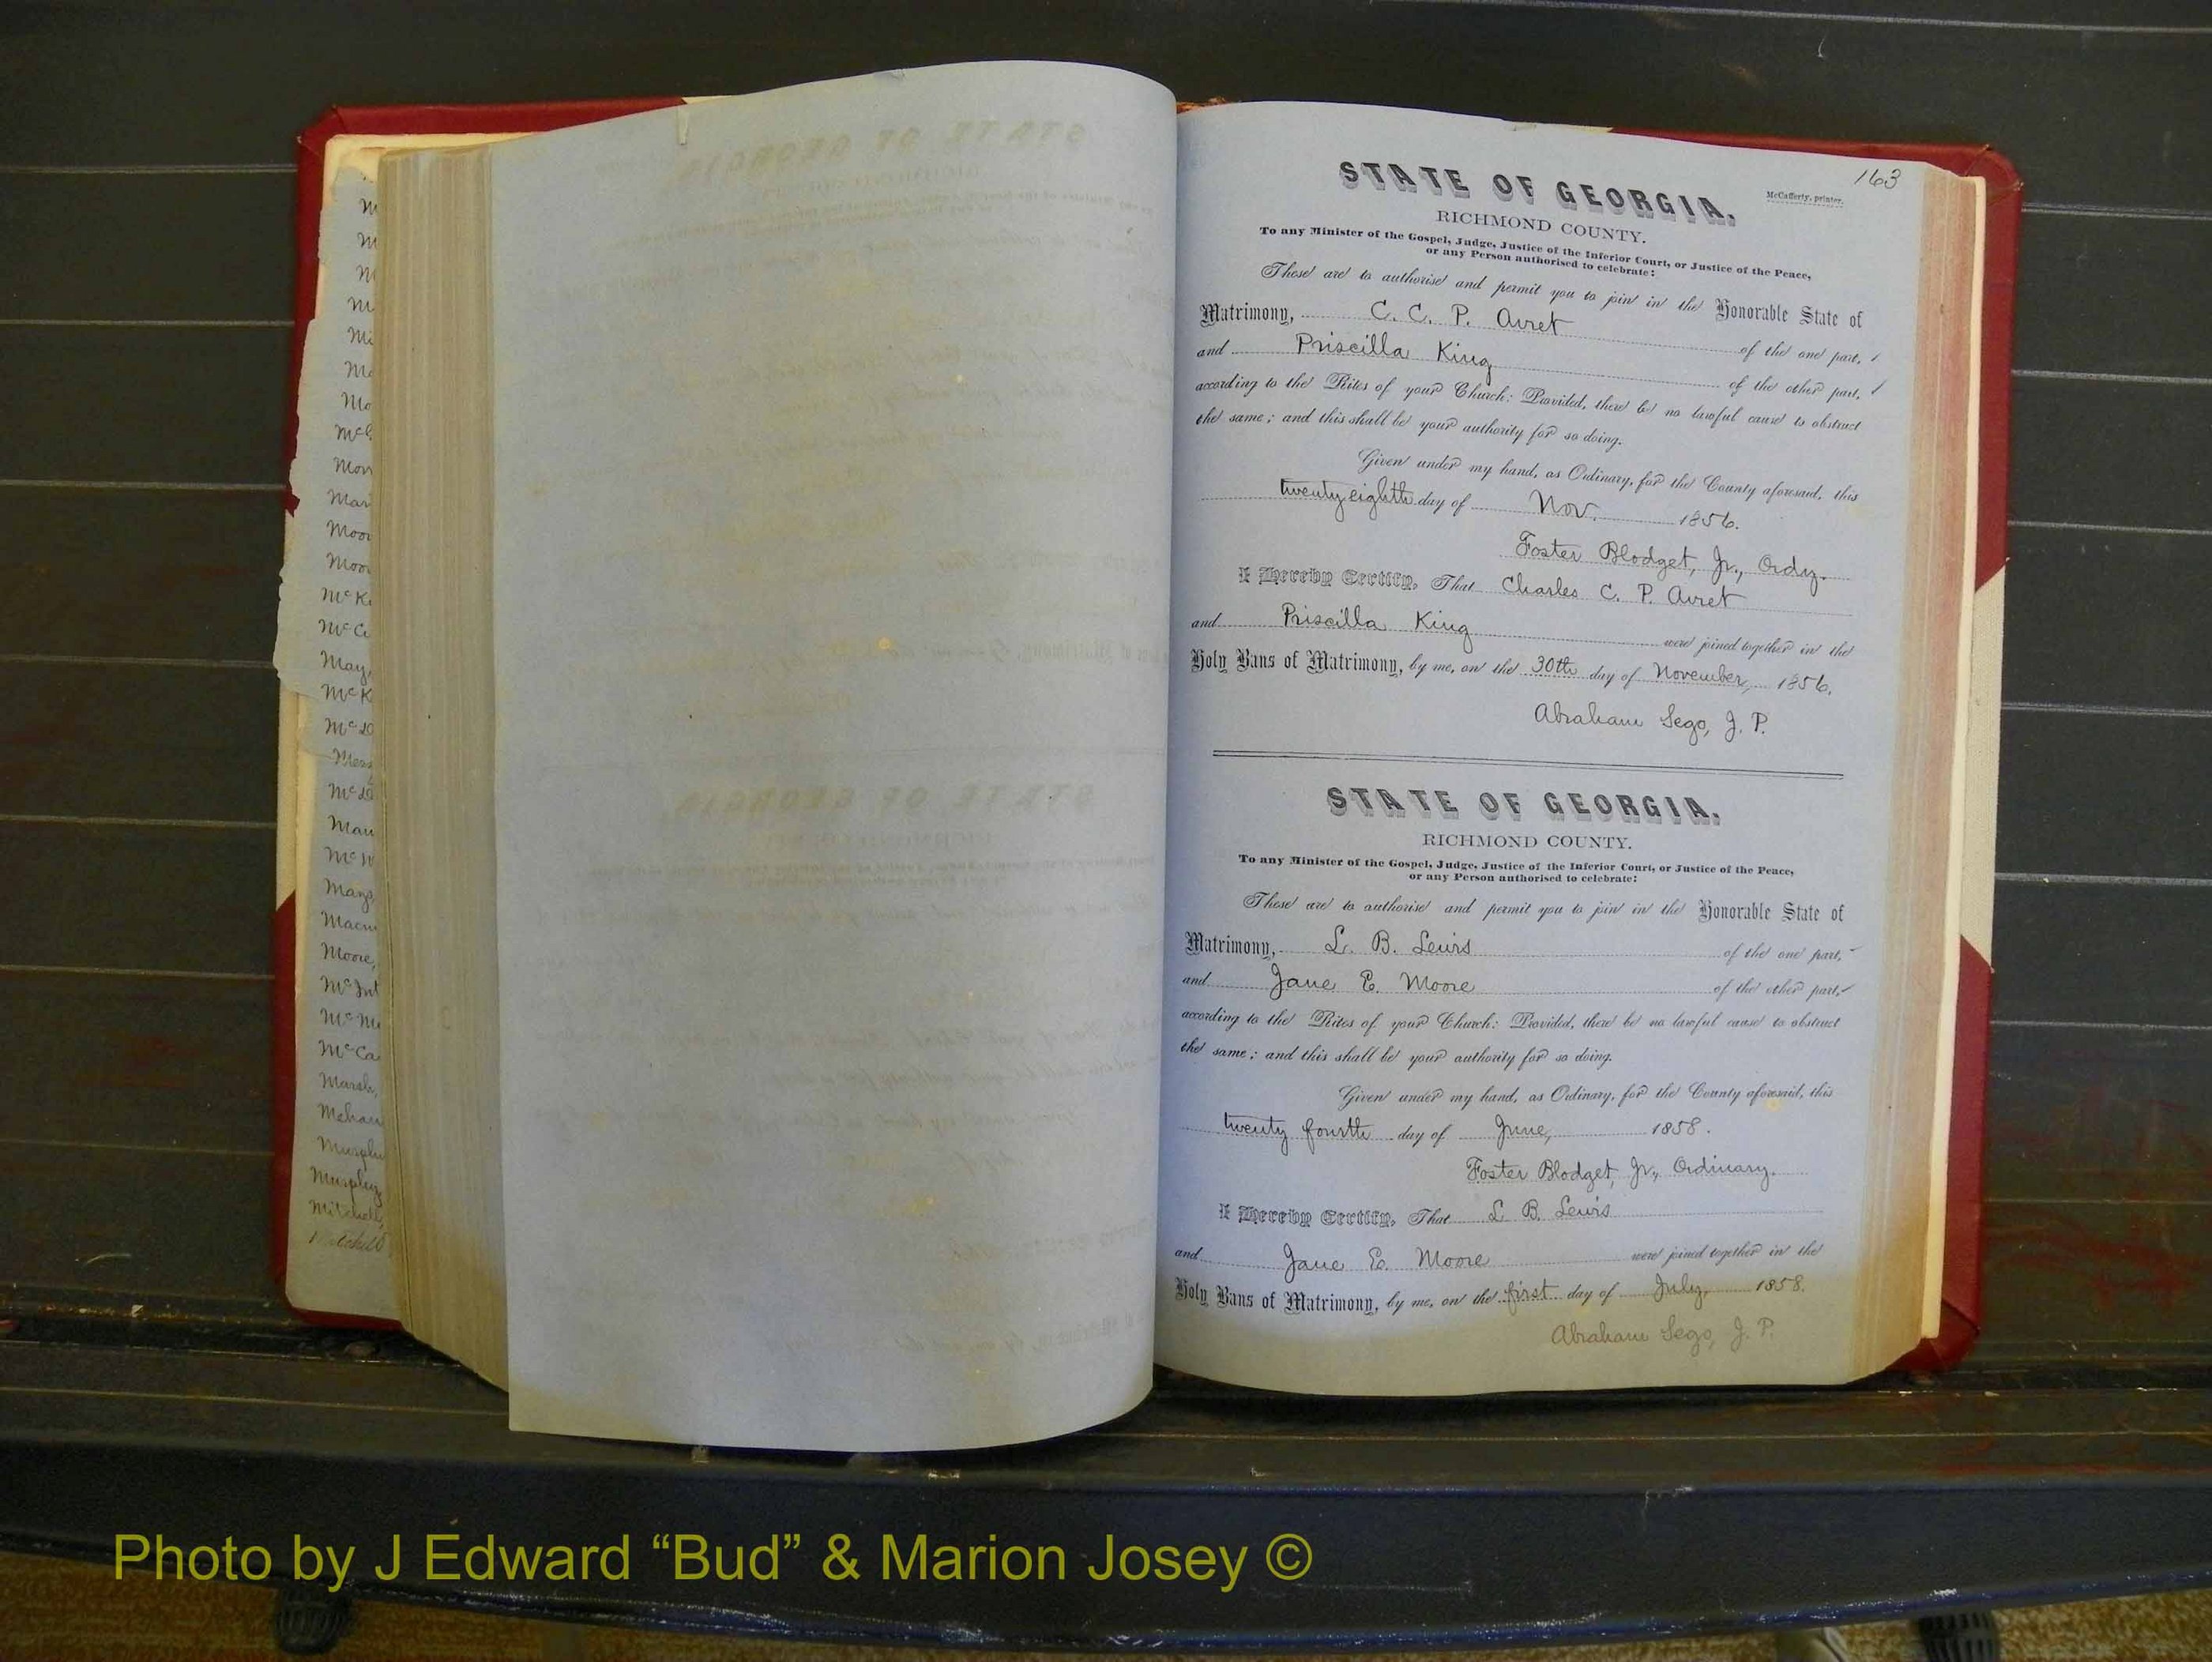 163
STATE OF GEORGIA.
McCafferty, printer.
RICHMOND COUNTY.
To any Minister of the Gospel, Judge, Justice of the Inferior Court, or Justice of the Peace,
or any Person authorised to celebrate:
These are to authorise and permit you to join in the Honorable State of
Matrimony, C. C. P. Avret of the one part,
and Priscilla King of the other part,
according to the Rites of your Church: Provided, there be no lawful cause to obstruct
the same; and this shall be your authority for so doing.
Given under my hand, as Ordinary, for the County aforesaid, this
twenty eighth day of Nov. 1856.
Foster Blodget, Jr., Ordy.
I Hereby Certify, That Charles C. P. Avret
and Priscilla King were joined together in the
Holy Bans of Matrimony, by me, on the 30th day of November, 1856.
Abraham Sego, J. P.
STATE OF GEORGIA.
RICHMOND COUNTY.
To any Minister of the Gospel, Judge, Justice of the Inferior Court, or Justice of the Peace,
or any Person authorised to celebrate:
These are to authorise and permit you to join in the Honorable State of
Matrimony, L. B. Lewis of the one part,
and Jane E. Moore of the other part,
according to the Rites of your Church: Provided, there be no lawful cause to obstruct
the same; and this shall be your authority for so doing.
Given under my hand, as Ordinary, for the County aforesaid, this
twenty fourth day of June, 1858.
Foster Blodget, Jr., Ordinary.
I Hereby Certify, That L B. Lewis
and Jane E. Moore were joined together in the
Holy Bans of Matrimony, by me, on the first day of July, 1858.
Abraham Sego, J. P.
Photo by J Edward “Bud” & Marion Josey ©